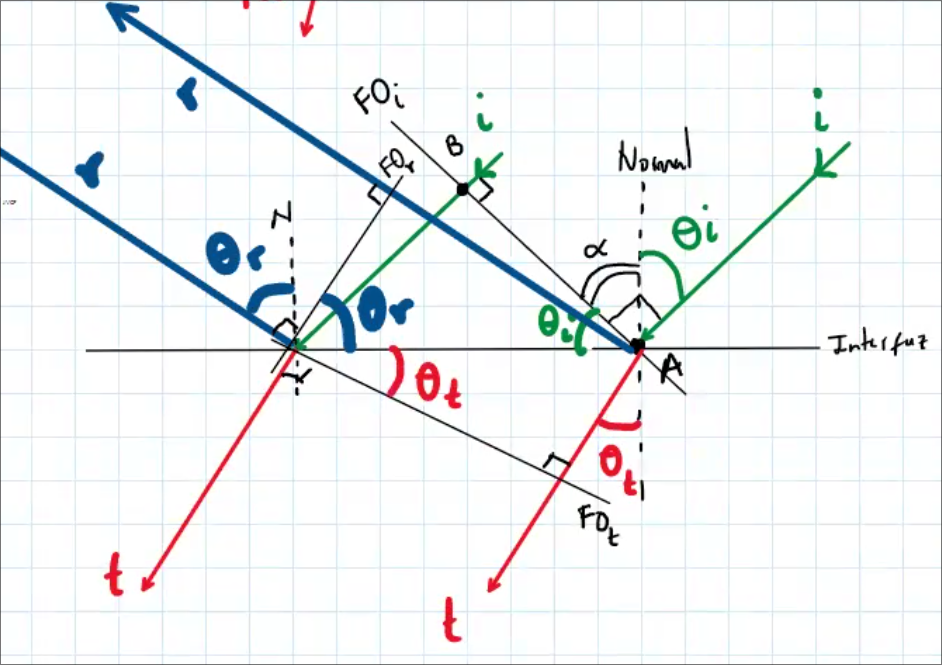 r
FOi
i
i
B
FOr
Normal
r
N
θr
θi
α
θr
θi
Interfaz
A
θt
θt
FOt
t
t